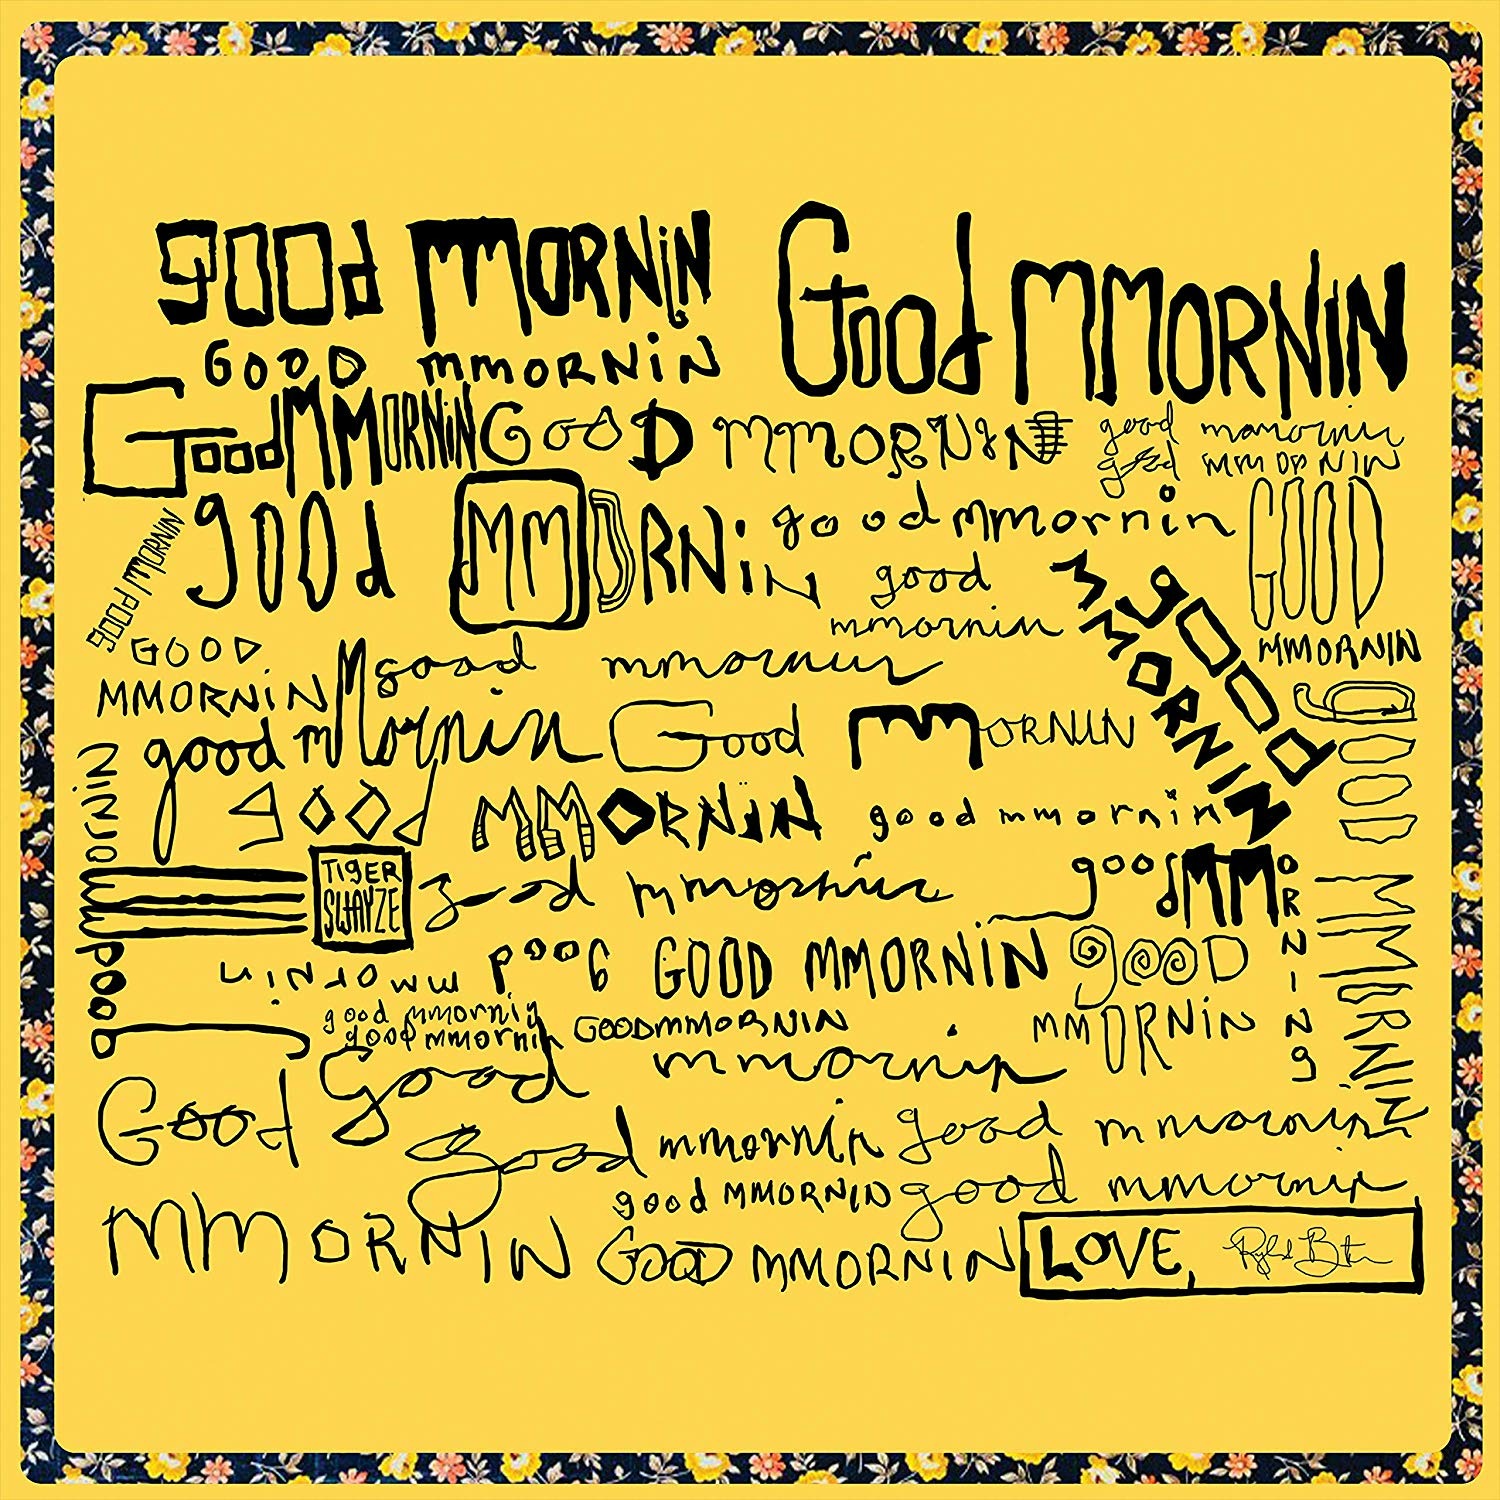 good mmornin
Good MMORNIN
GOOD mmORNiN
Good MMORNiN
GooD MMORNIN
good mmornin
good MM OR NIN
good MMORNiN
good mmornin
GOOD
MMORNIN
good MMORNIN
good
mmornin
good MMORNIN
GOOD
MMORNiN
good mmornin
good mMornin
Good MMORNIN
good MMORNIN
good MMORNIN
good mmornin
good mmornin
TiGER
SWAYZE
good mmornin
good MMORNING
good mmornin
GOOD MMORNiN
gooD
MMORNiN
good mmornin
good mmornin
GOODMMORNIN
Good
MMORNIN
good mmornin
good mmornin
good mmornin
good MMORNIN
good mmornin
GOOD MMORNIN
LOVE,